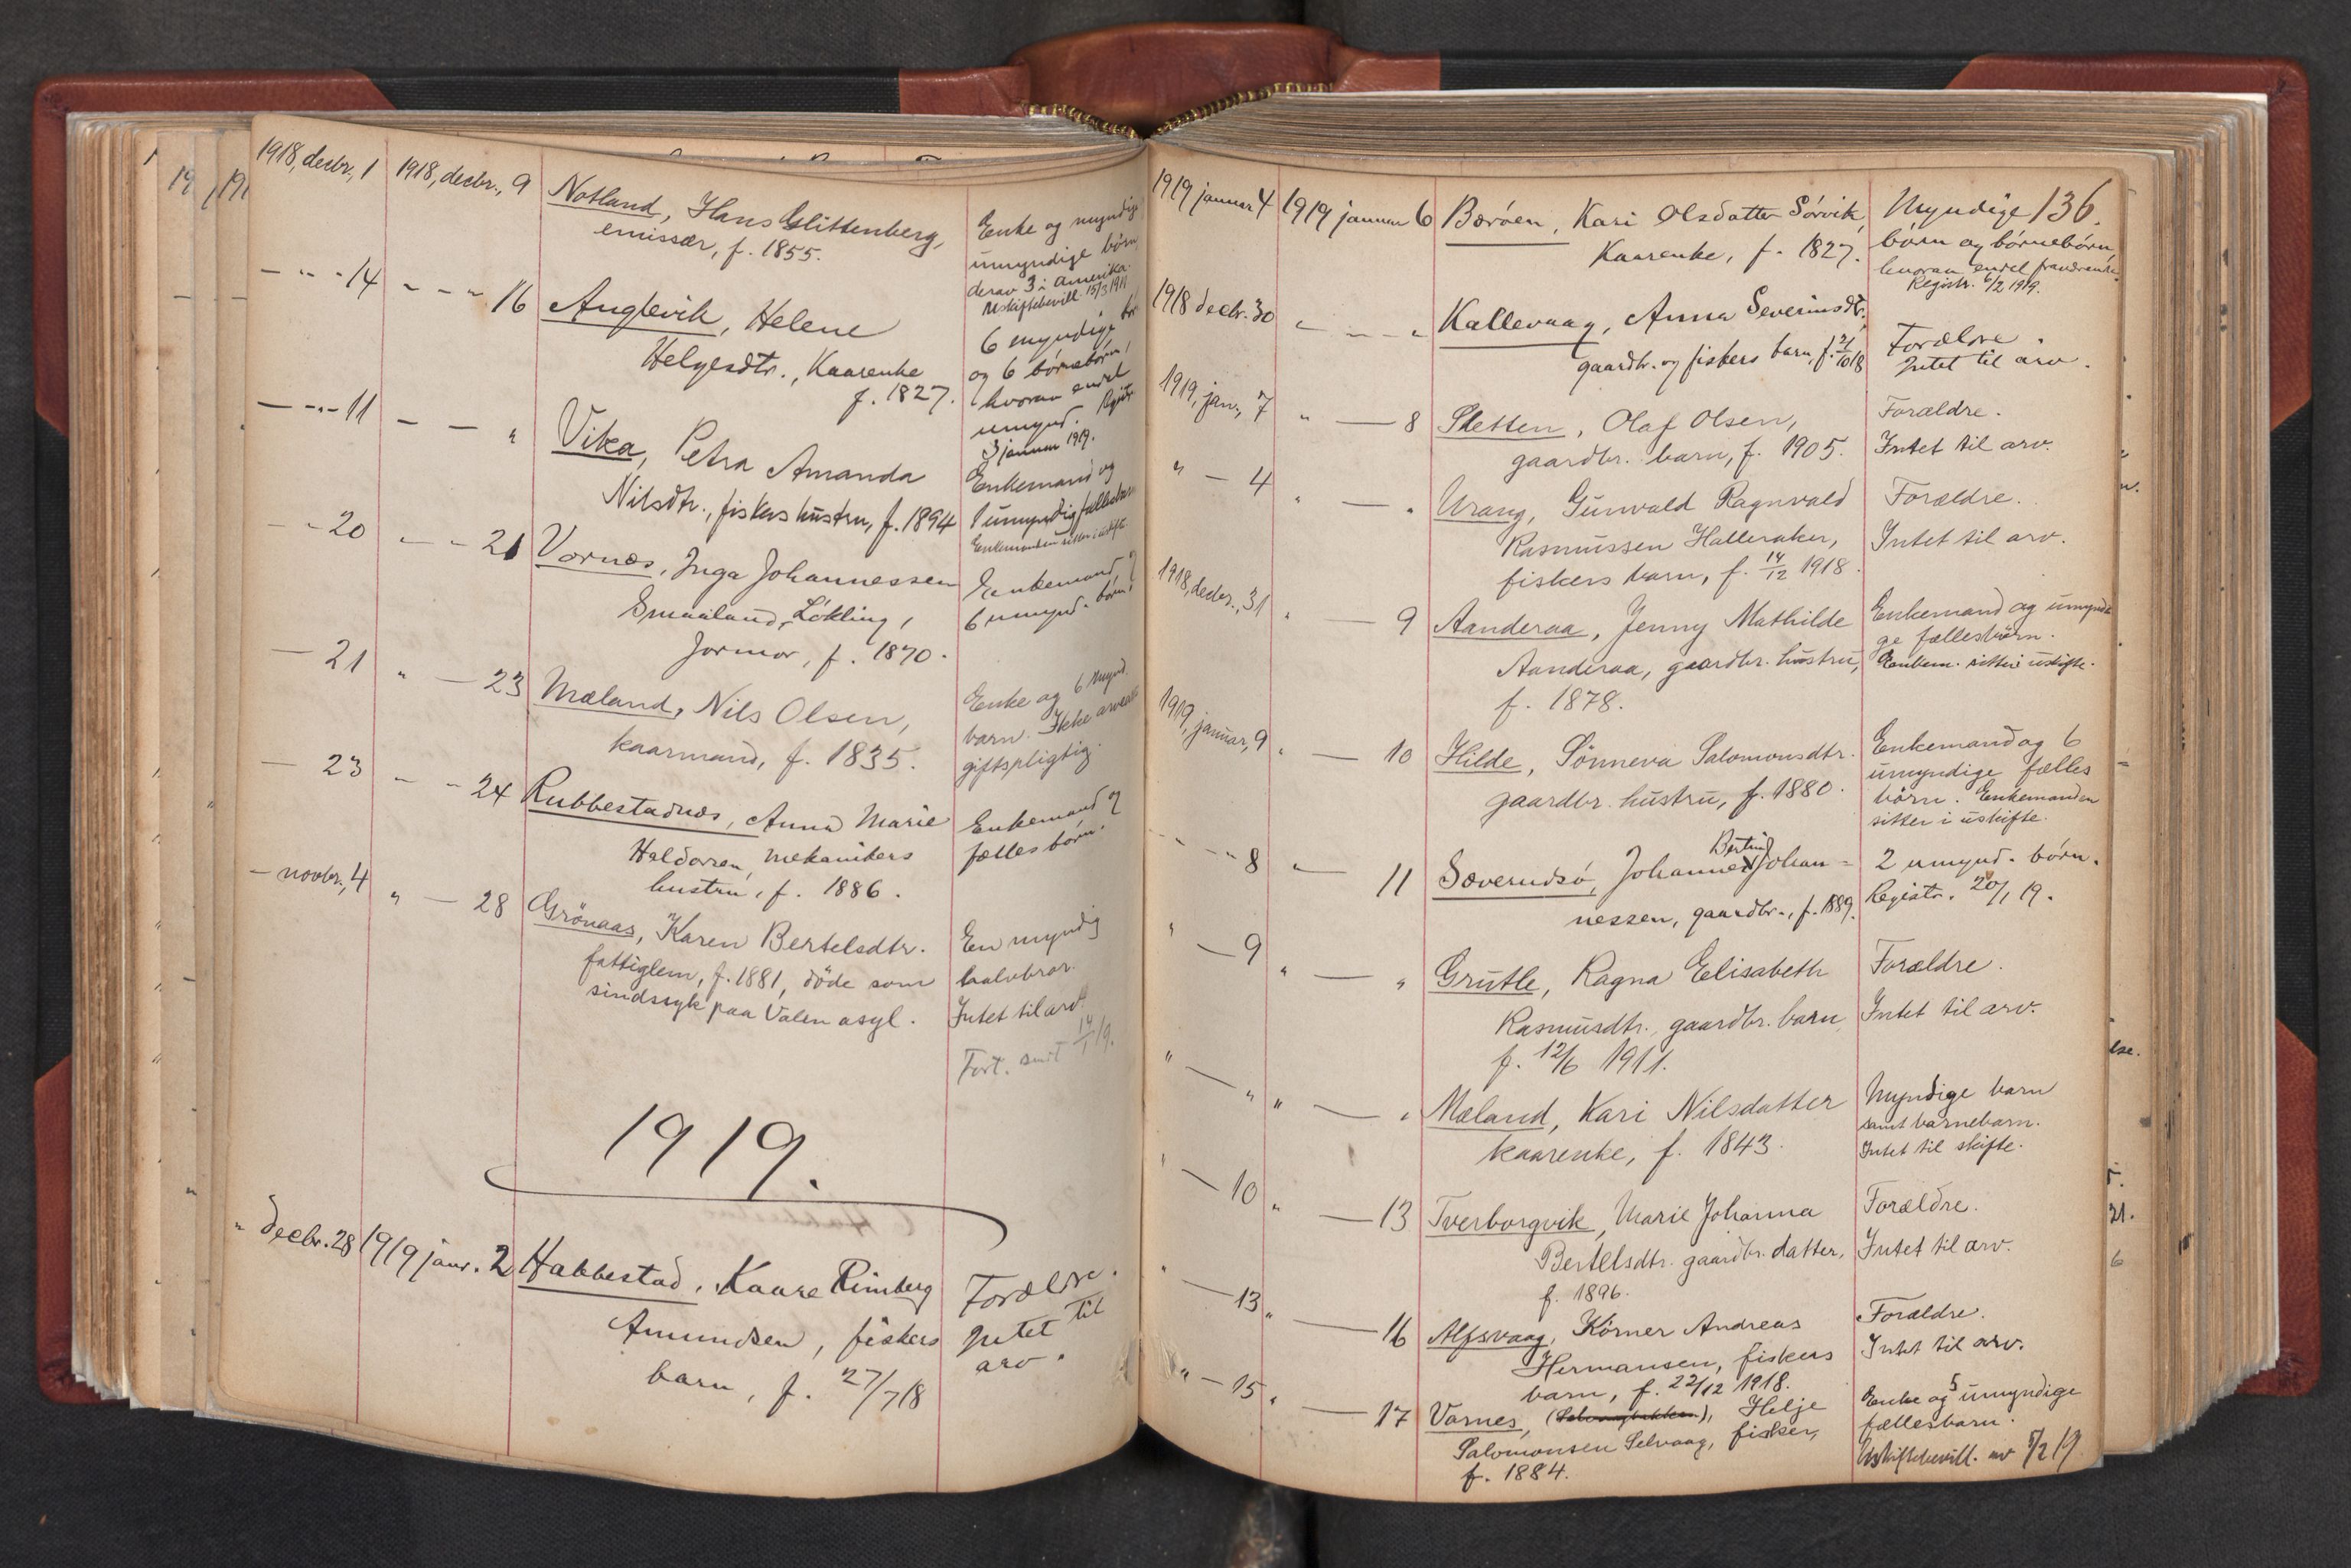 1918, decbr., 1 1918, decbr., 9 Notland, Hans Glittenberg,
emissær, f. 1855.
Enke og myndige
umyndige børn,
derav 3 i Amerika.
Uskiftebevill. 15/3 1919
- " - 14 - - " 16 Auglevik, Helene
Helgesdtr., Kaarenke
f. 1827.
6 myndige
og 6 børnebørn,
hvorav endel
umynd. Registr.
3 januar 1919.
- " - 11 - - " Vika, Petra Amanda
Nilsdtr., fiskers hustru, f. 1894
Enkemand og
1 umyndig fællesbarn
Enkemanden sitter i uskifte
- - 20 - - - 21 Vornes, Inga Johannessen
Smaaland, Løkling,
Jormor, f. 1870.
Enkemand og
6 umynd. børn.
- 21 " - 23 Mæland, Nils Olsen,
kaarmand, f. 1835.
Enke og 6 mynd.
barn. Ikke
giftspligtig.
- 23 - - - 24 Rubbestadnes, Anna Marie
Haldorsen, mekanikers
hustru, f. 1886.
Enkemand og
fælles børn.
- novbr., 4 " - 28 Grönaas, Karen Bertelsdtr.
fattiglem, f. 1881, döde som
sindssyk paa Valen asyl.
En myndig
halvbror.
Intet til arv.
Fort. 14/1 19.
1919.
" decbr. 28 1919 janr. 2 Habbestad, Kaare Rimberg
Amundsen, fiskers
barn, f. 27/7 18
Forældre.
Intet til
arv.
136.
1919 januar 4 1919 januar 6 Bærøen, Kari Olsdatter Sörvik,
Kaarenke, f. 1827.
Myndige
börn og börnebörn,
hvorav endel
Registr. 6/2 1919.
1918 decbr. 30 " - - " Kallevaag, Anna Severinsdtr.,
gaardbr. og fiskers barn, f. 21/10 18
Forældre.
Intet til arv.
1919, jan., 7 " - 8 Sletten, Olaf Olsen,
gaardbr. barn, f. 1905.
Forældre.
Intet til arv.
" - 4 " - " Urang, Gunvald Ragnvald
Rasmussen Halleraker,
fiskers barn, f. 14/12 1918.
Forældre.
Intet til arv.
1918, decbr., 31 " - 9 Aanderaa, Jenny Mathilde
Aanderaa, gaardbr. hustru,
f. 1878.
Enkemand og umyndi
ge fællesbörn.
Enkem. sitter i uskifte.
1919, januar, 9 " - 10 Hilde, Sönneva Salomonsdtr.
gaardbr. hustru, f. 1880.
Enkemand og 6
umyndige fælles
börn. Enkemanden
sitter i uskifte.
- - - 8 " - 11 Sæverudsö, Johannes Bertinus Johan=
nessen, gaardbr., f. 1889.
2 umynd. börn.
Registr. 20/1 19.
" - 9 " - " Grutle, Ragna Elisabeth
Rasmusdtr. gaardbr. barn,
f. 12/6 1911.
Forældre.
Intet til arv.
" - " " - " Mæland, Kari Nilsdatter
kaarenke, f. 1843.
Myndige barn
samt barnebarn.
Intet til skifte.
" - 10 " - 13 Tverborgvik, Marie Johanna
Bertelsdtr. gaardbr. datter,
f. 1896.
Forældre.
Intet til arv.
" - 13 " - 16 Alfsvaag, Körner Andreas
Hermansen, fiskers
barn, f. 22/12 1918.
Forældre.
Intet til arv.
" - 15 " - 17 Vornes, Helje
Salomonsen Selvaag, fisker,
f. 1884.
Enke og 5 umyndige
fællesbarn.
Uskiftebevill. av 5/2 19